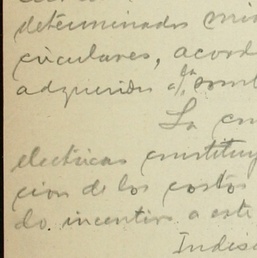 determinados min
circulares, acord
adqueridos a la, som
La con
electricas constituy
cion de los costos
do, incentivo a este
Indisc